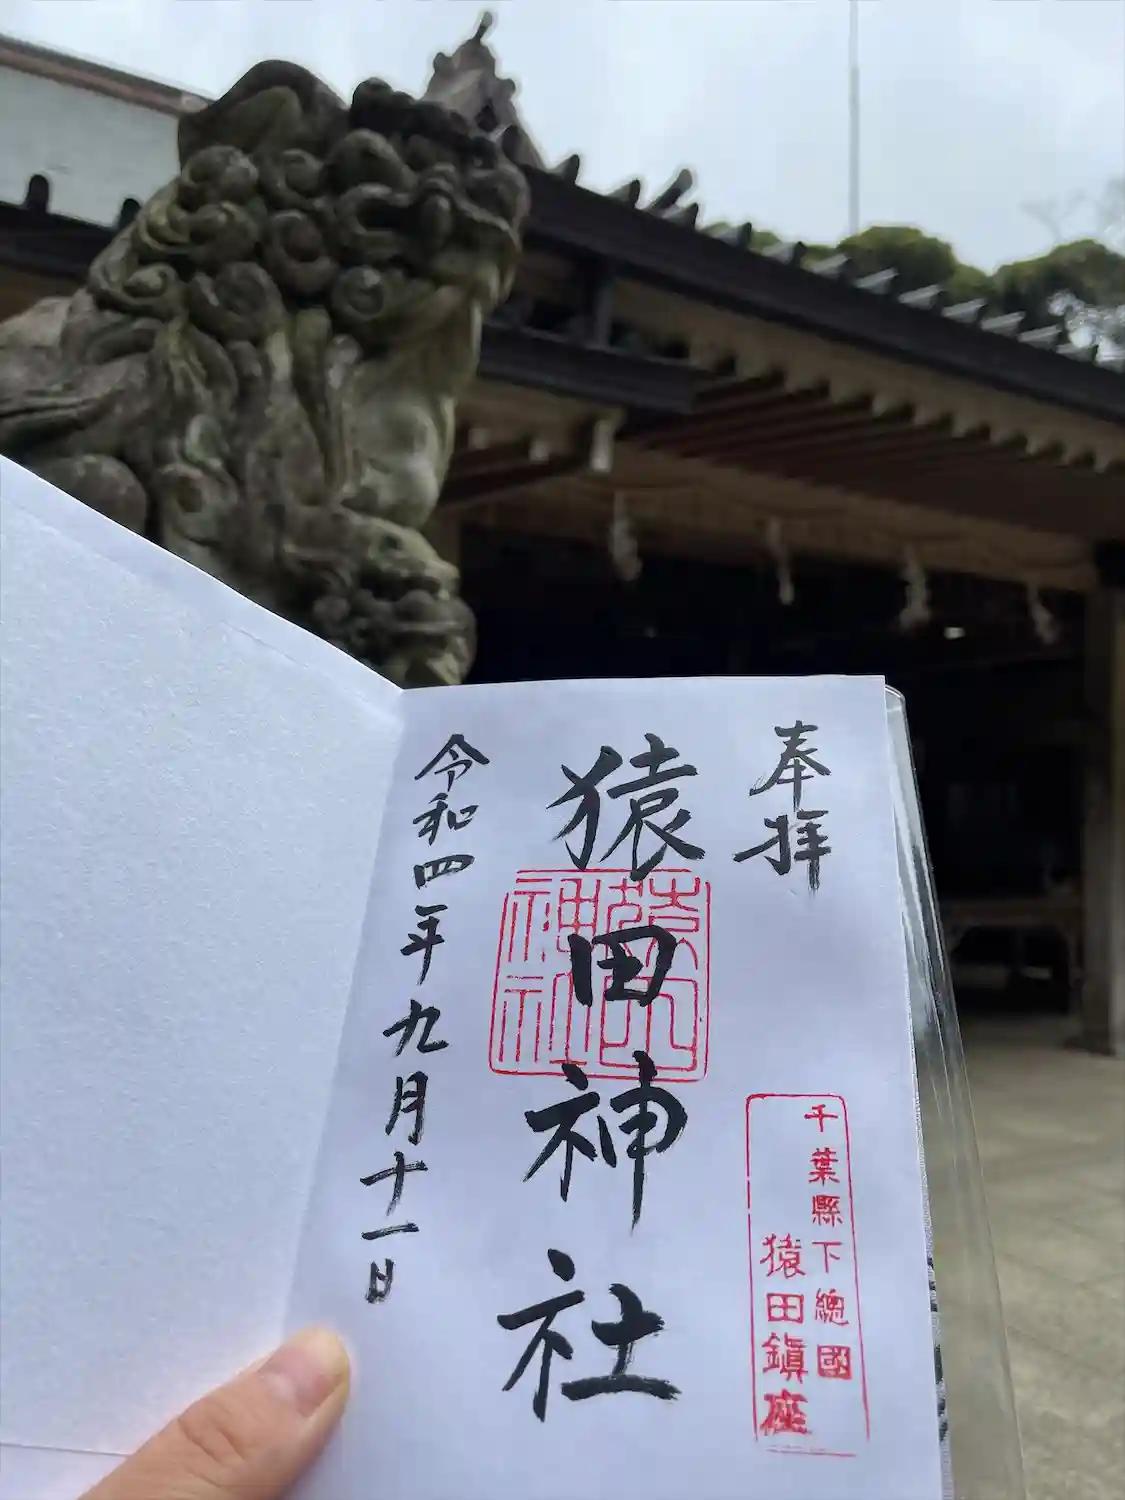 奉拝
千葉縣下總國
猿田鎭座
猿田神社
猿田神社
令和四年九月十一日